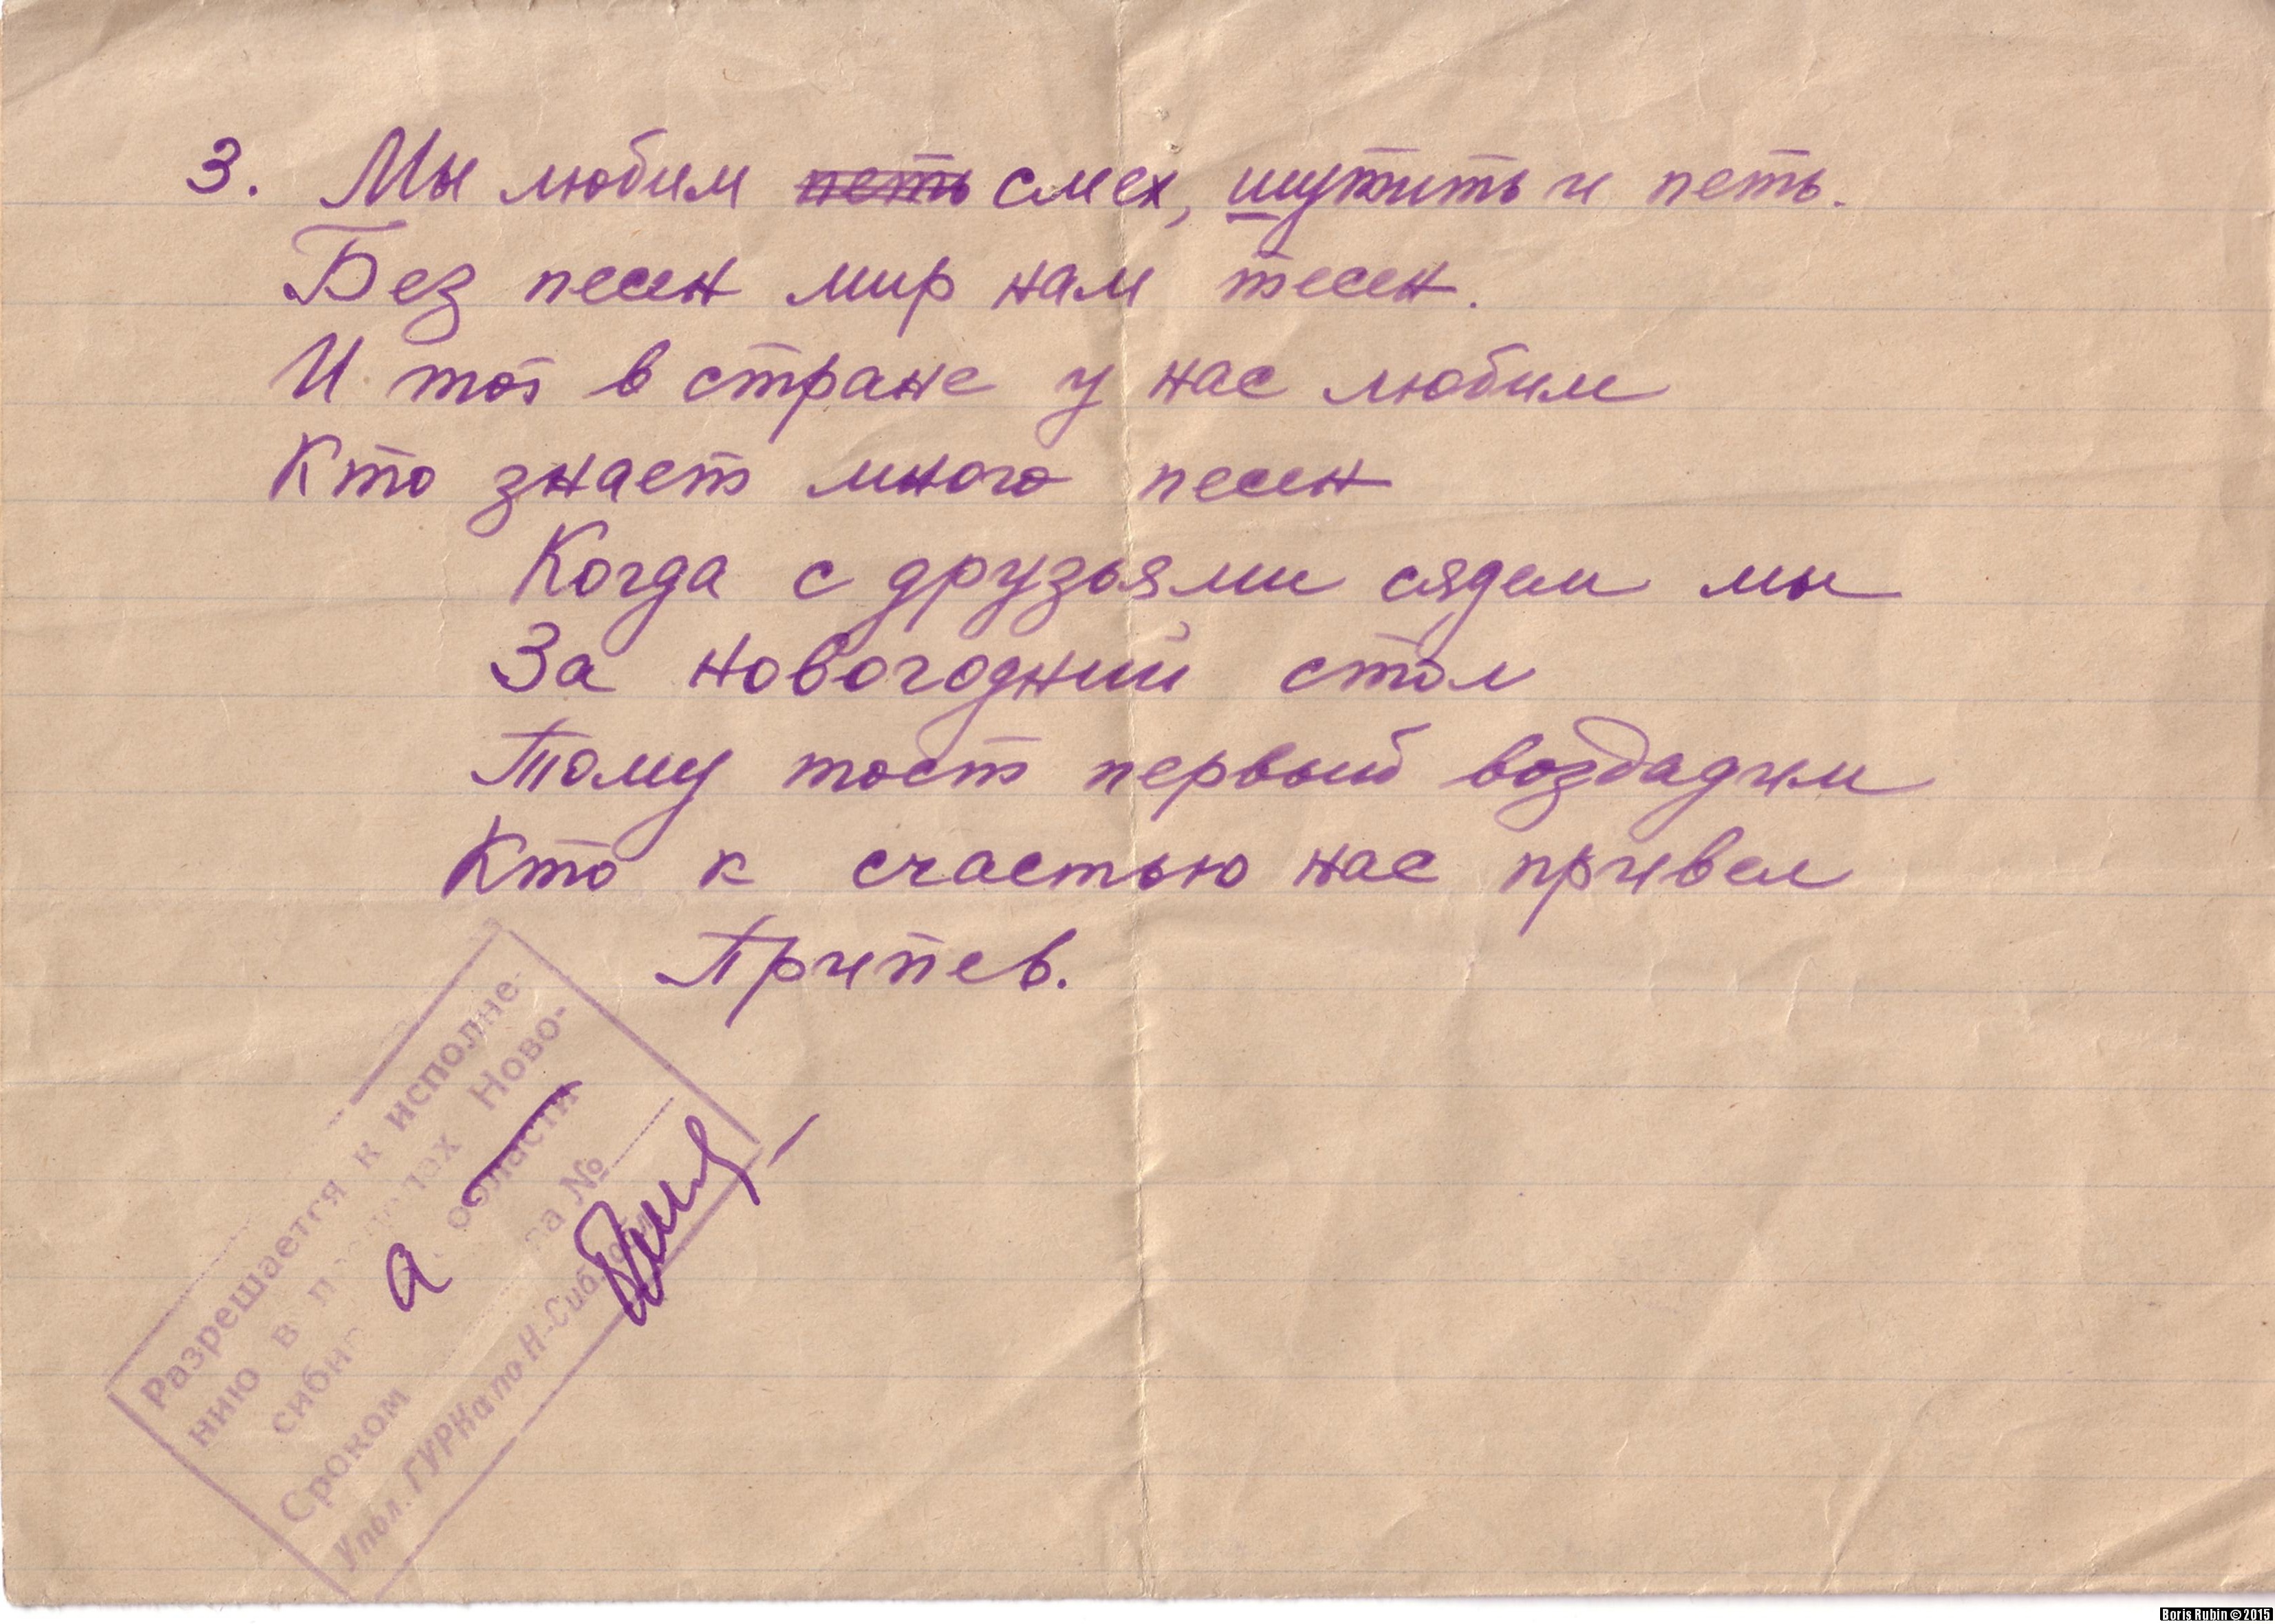 3. Мы любим петь смех, шутить и петь.
Без песен мир нам тесен.
И тот в стране у нас любим
Кто знает много песен
Когда с друзьями сядем мы
За новогодний стол
Тому тост первый воздадим
Кто к счастью нас привел
Припев.
Разрешается к исполне-
нию в Ново-
области
Сроком №
Упол. ГУРКа по Н-Сиб. обл.
Boris Rubin © 2015